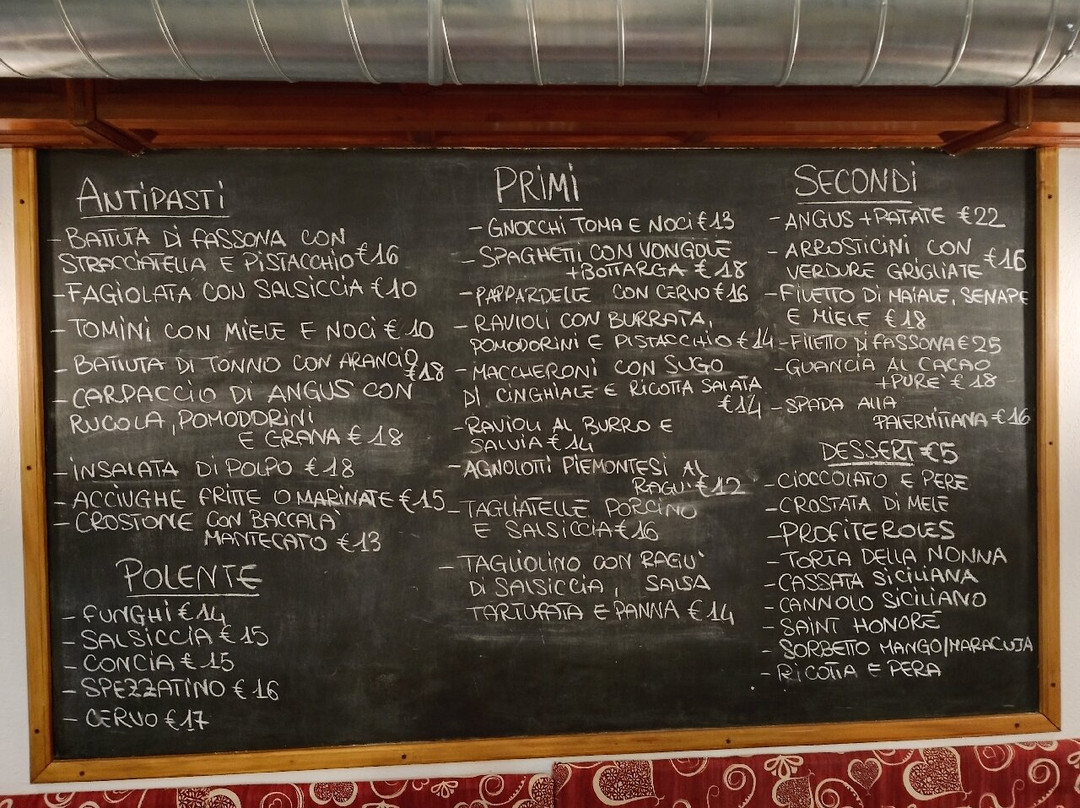 ANTIPASTI
- BATTUTA DI FASSONA CON
STRACCIATELLA E PISTACCHIO €16
- FAGIOLATA CON SALSICCIA €10
- TOMINI CON MIELE E NOCI € 10
- BATTUTA DI TONNO CON ARANCIO
€18
- CARPACCIO DI ANGUS CON
RUCOLA, POMODORINI
E GRANA € 18
- INSALATA DI POLPO €18
- ACCIUGHE FRITTE O MARINATE €15
- CROSTONE CON BACCALA'
MANTECATO €13
POLENTE
- FUNGHI €14
- SALSICCIA €15
- CONCIA € 15
- SPEZZATINO € 16
- CERVO €17
PRIMI
- GNOCCHI TOMA E NOCI €13
- SPAGHETTI CON VONGOLE
+BOTTARGA € 18
- PAPPARDELLE CON CERVO €16
- RAVIOLI CON BURRATA,
POMODORINI E PISTACCHIO €14
- MACCHERONI CON SUGO
DI CINGHIALE E RICOTTA SALATA
€14
- RAVIOLI AL BURRO E
SALVIA €14
- AGNOLOTTI PIEMONTESI AL
RAGU' €12
- TAGLIATELLE PORCINO
E SALSICCIA €16
- TAGLIOLINO CON RAGU'
DI SALSICCIA, SALSA
TARTUFATA E PANNA € 14
SECONDI
- ANGUS + PATATE €22
- ARROSTICINI CON
VERDURE GRIGLIATE €16
- FILETTO DI MAIALE, SENAPE
E MIELE €18
- FILETTO DI FASSONA €25
- GUANCIA AL CACAO
+PURE' € 18
- SPADA ALLA
PALERMITANA €16
DESSERT €5
- CIOCCOLATO E PERE
- CROSTATA DI MELE
- PROFITEROLES
- TORTA DELLA NONNA
- CASSATA SICILIANA
- CANNOLO SICILIANO
- SAINT HONORE'
- SORBETTO MANGO/MARACUJA
- RICOTTA E PERA